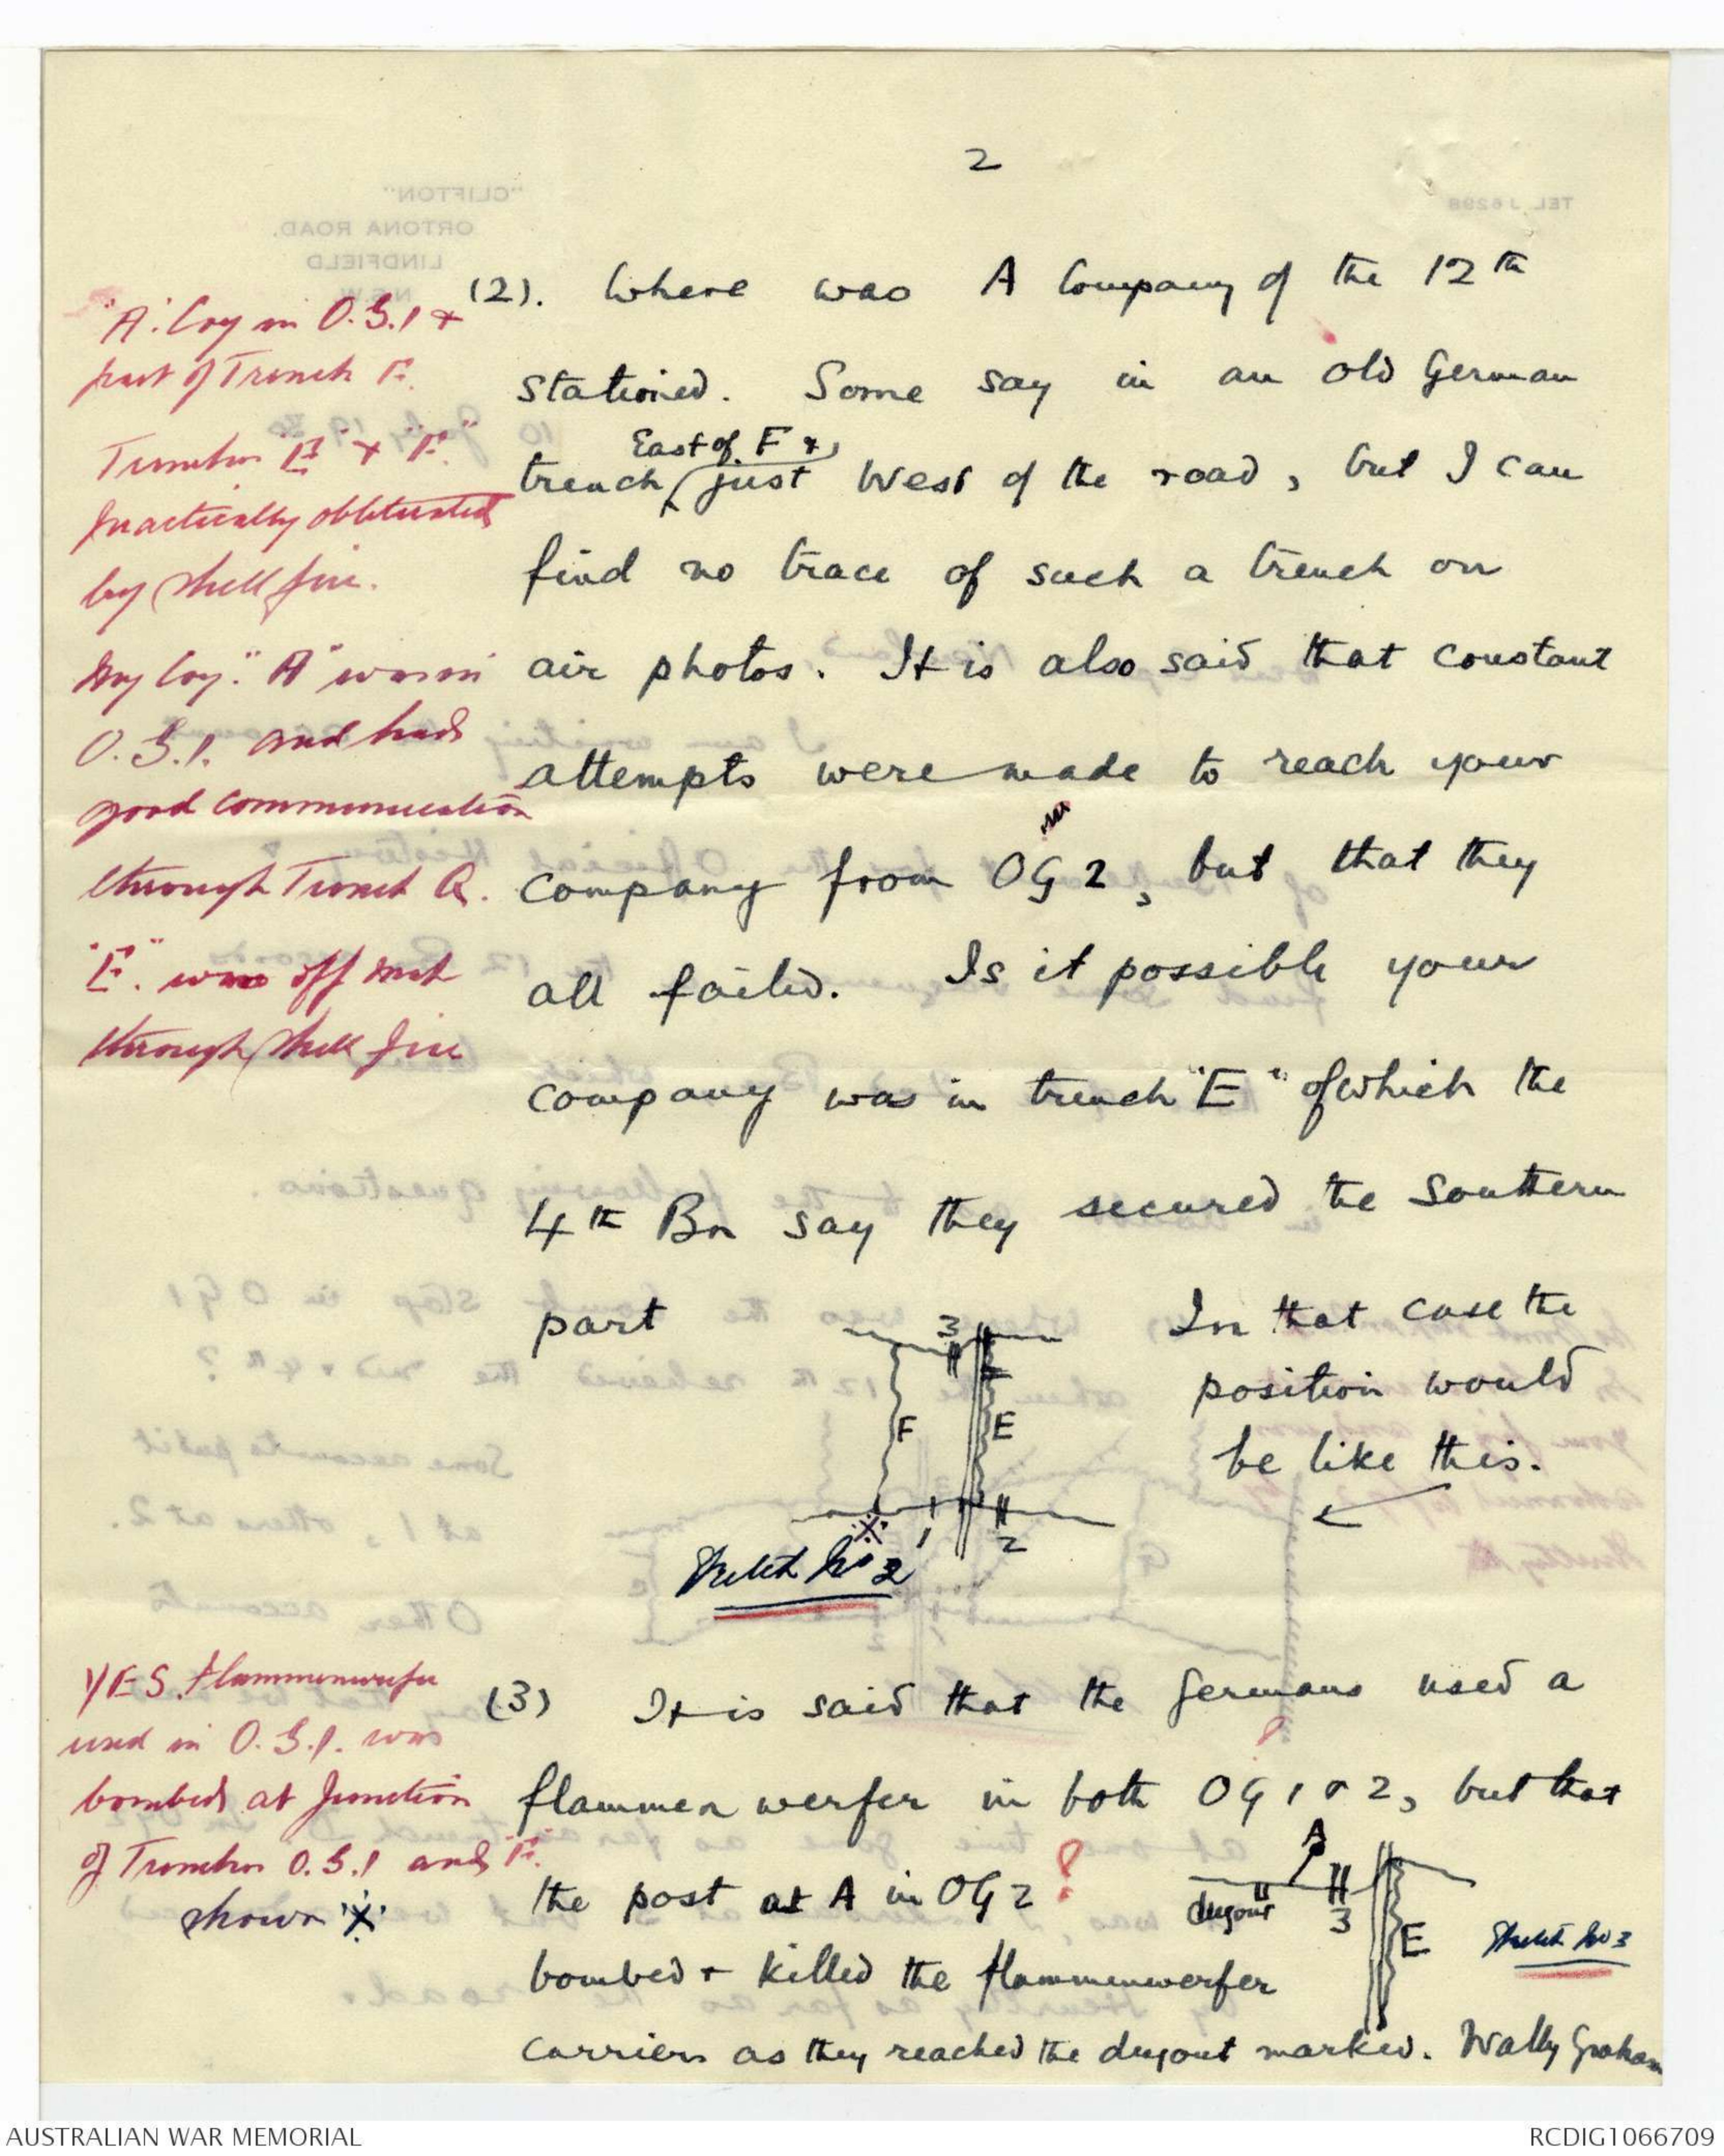 2
"CLIFTON"
ORTONA ROAD.
LINDFIELD
N.S.W.
TEL J 6298
(2). Where was A Company of the 12th
stationed. Some say in an old German
East of F &
trench, just West of the road, but I can
find no trace of such a trench on
air photos. It is also said that constant
attempts were made to reach your
company from OG 2, but that they
all failed. Is it possible your
company was in trench "E" of which the
4th Bn say they secured the Southern
part
In that case the
position would
be like this.
3
F
E
1
2
Sketch No 2
(3) It is said that the Germans used a
flammen werfer in both OG 1 & 2, but that
the post at A in OG 2 ?
bombed & killed the flammenwerfer
carriers as they reached the dugout marked. Wally Graham
A
dugout
3
E
Sketch No 3
"A" Coy in O.G.1 &
part of Trench F.
Trenches "E" & "F"
practically obliterated
by shell fire.
My Coy. "A" was in
O.G.1. and had
good communication
through Trench Q.
"E". was off met
through shell fire
YES. Flammenwerfer
used in O.G.1. was
bombed at Junction
of Trenches O.G.1 and "F".
shown ※
AUSTRALIAN WAR MEMORIAL
RCDIG1066709